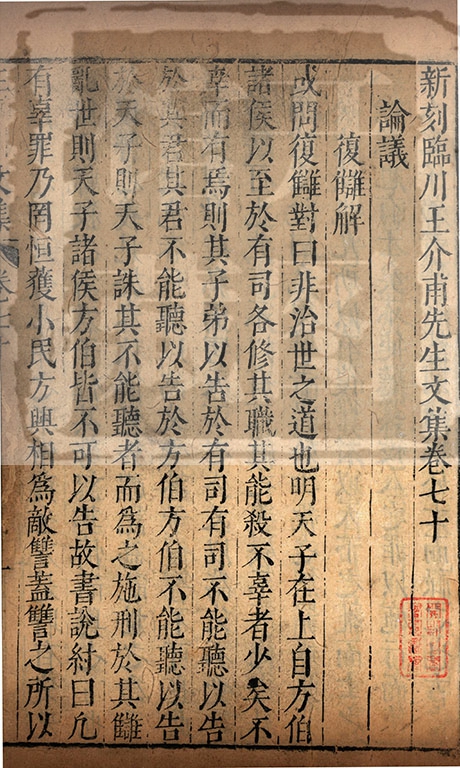 新刻臨川王介甫先生文集卷七十
論議
復讎解
或問復讎對曰非治世之道也明天子在上自方伯
諸侯以至於有司各修其職其能殺不辜者少矣不
幸而有焉則其子弟以告於有司有司不能聽以告
於其君其君不能聽以告於方伯方伯不能聽以告
於天子則天子誅其不能聽者而為之施刑於其讎
亂世則天子諸侯方伯皆不可以告故書說紂曰凡
有辜罪乃罔恒獲小民方興相為敵讐蓋讐之所以